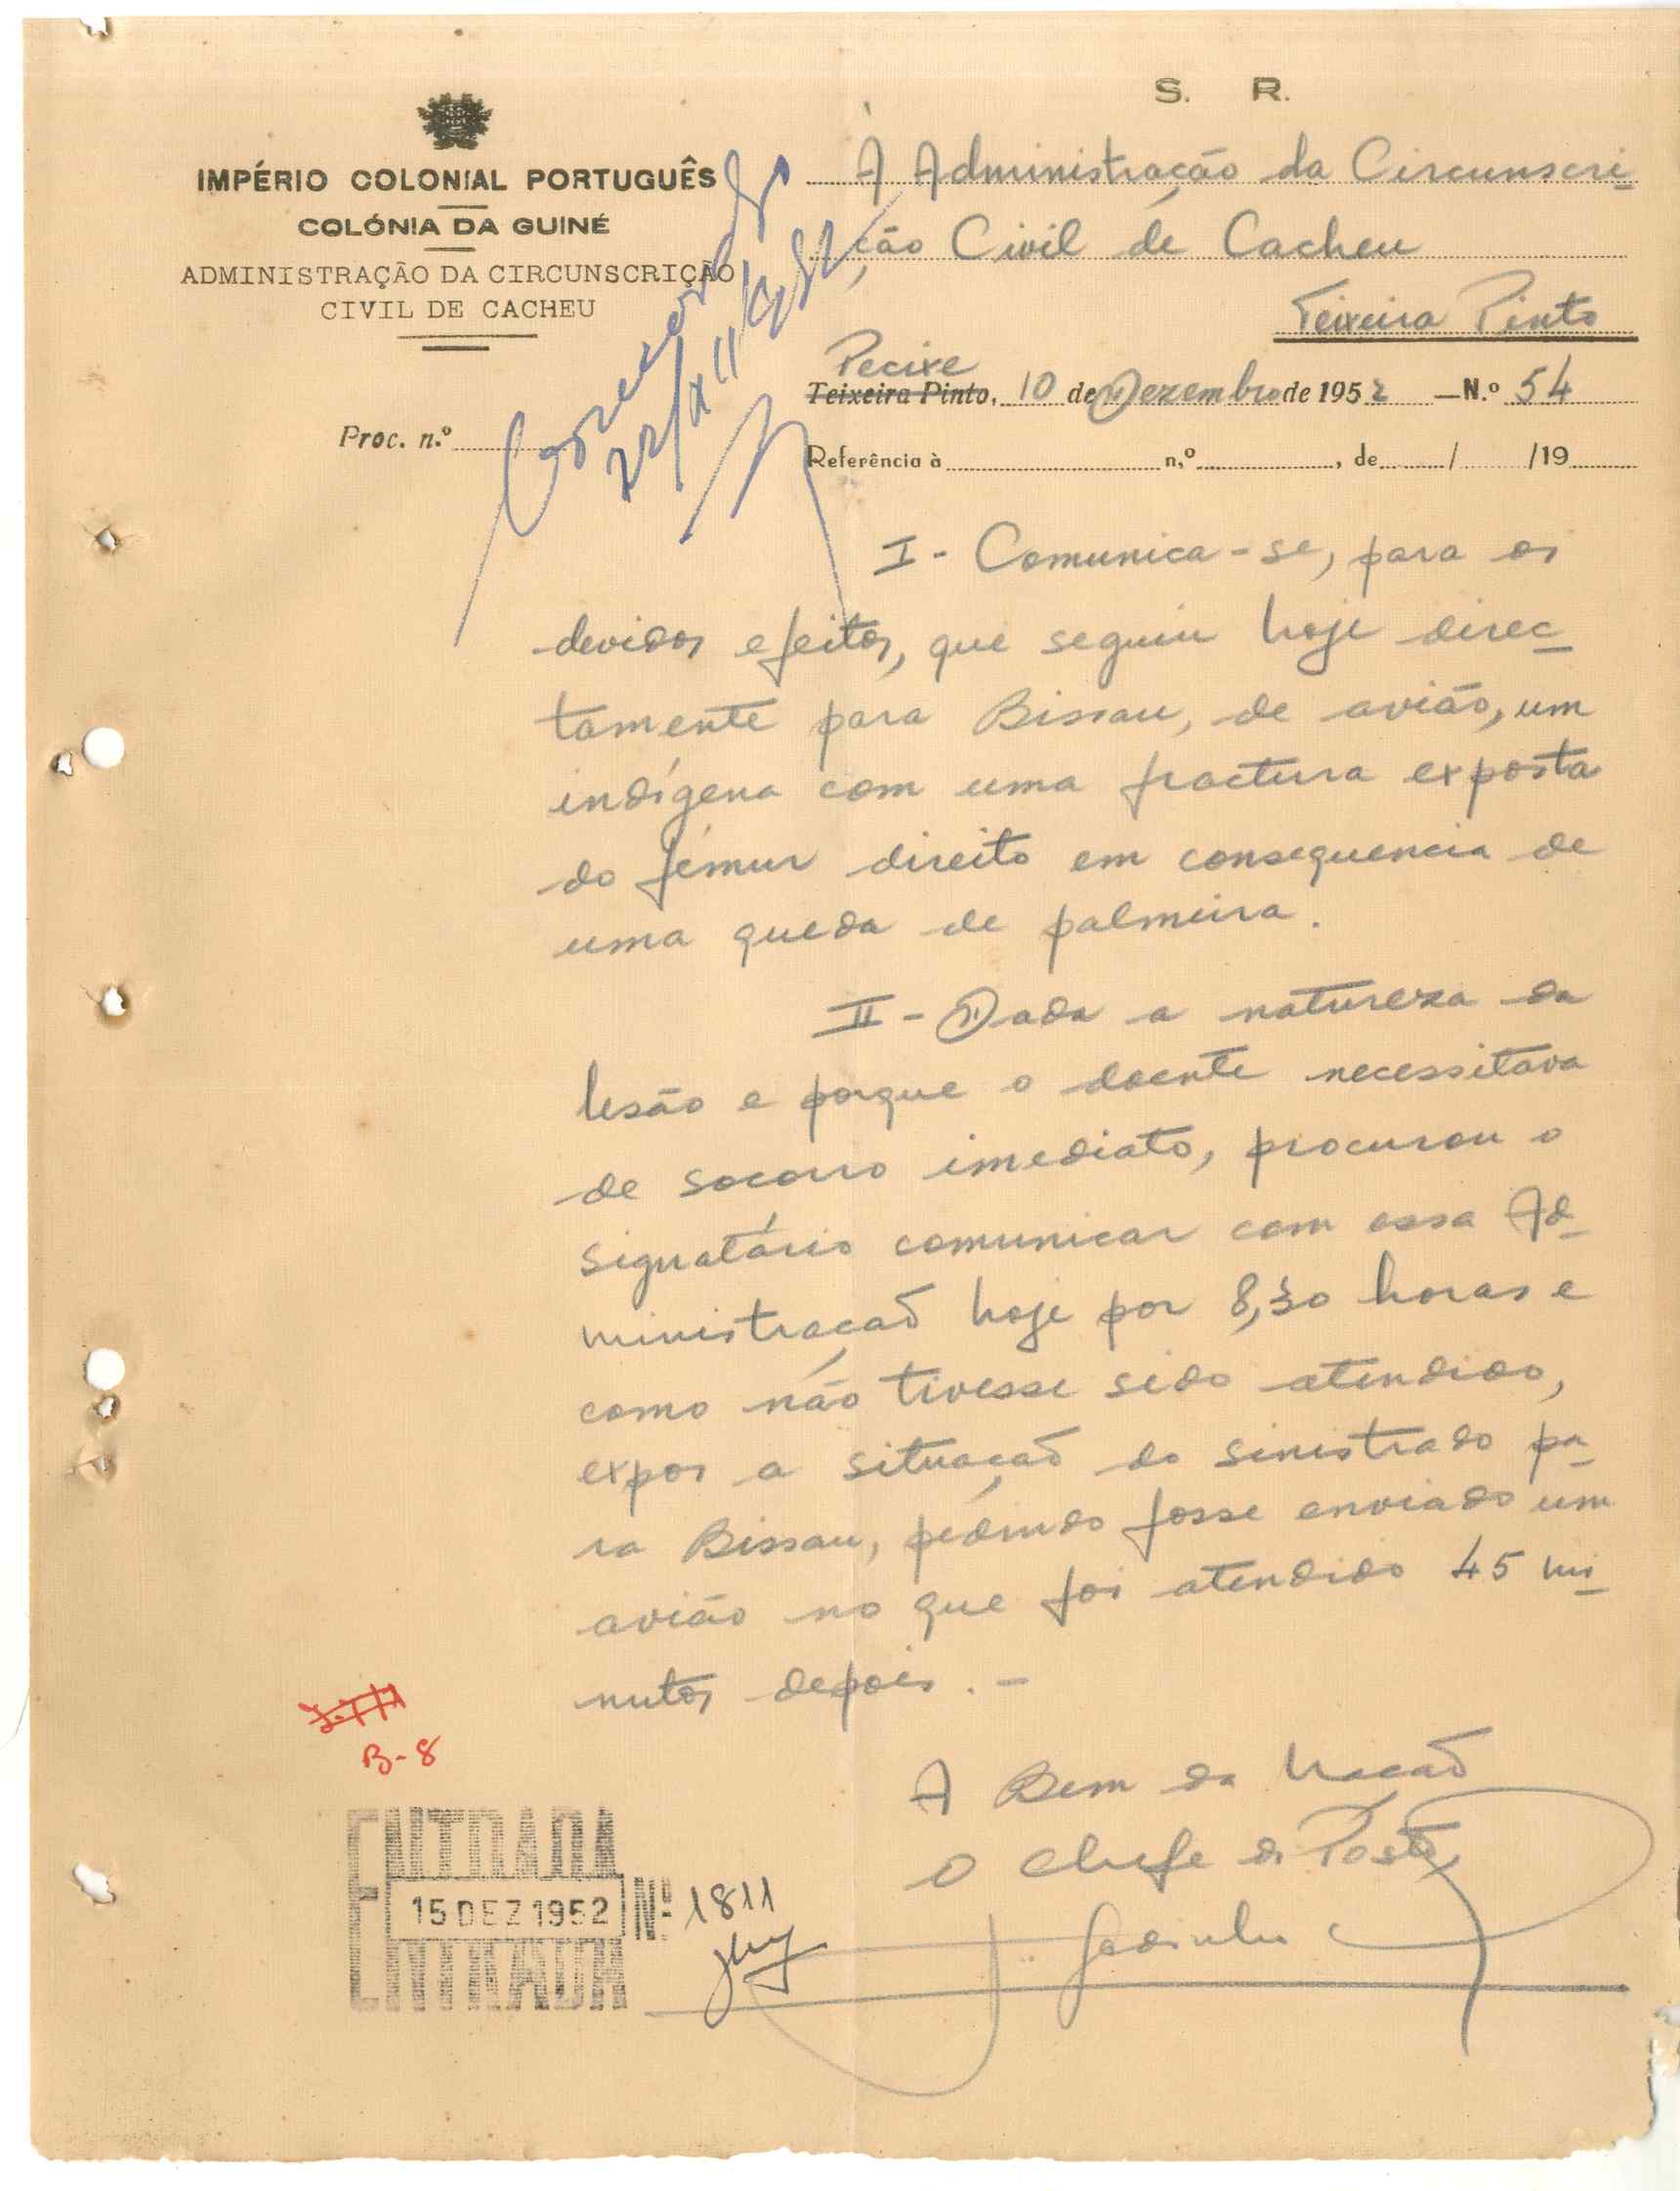 S. R.
IMPÉRIO COLONIAL PORTUGUÊS
COLÓNIA DA GUINÉ
ADMINISTRAÇÃO DA CIRCUNSCRIÇÃO
CIVIL DE CACHEU
À Administração da Circunscri-
ção Civil de Cacheu
Teixeira Pinto
Pecixe
Teixeira Pinto, 10 de Dezembro de 1952 — N.º 54
Proc. n.º
Referência à n.º , de / /19
22/XII/952
I - Comunica-se, para os
devidos efeitos, que seguiu hoje direc-
tamente para Bissau, de avião, um
indígena com uma fractura exposta
do fémur direito em consequencia de
uma queda de palmeira.
II - Dada a natureza da
lesão e porque o doente necessitava
de socorro imediato, procurou o
signatário comunicar com essa Ad-
ministração hoje por 8,30 horas e
como não tivesse sido atendido,
expos a situação do sinistrado pa-
ra Bissau, pedindo fosse enviado um
avião no que foi atendido 45 mi-
nutos depois. -
A Bem da Nação
O Chefe de Posto
B-8
ENTRADA
15 DEZ 1952 Nº 1811
ENTRADA